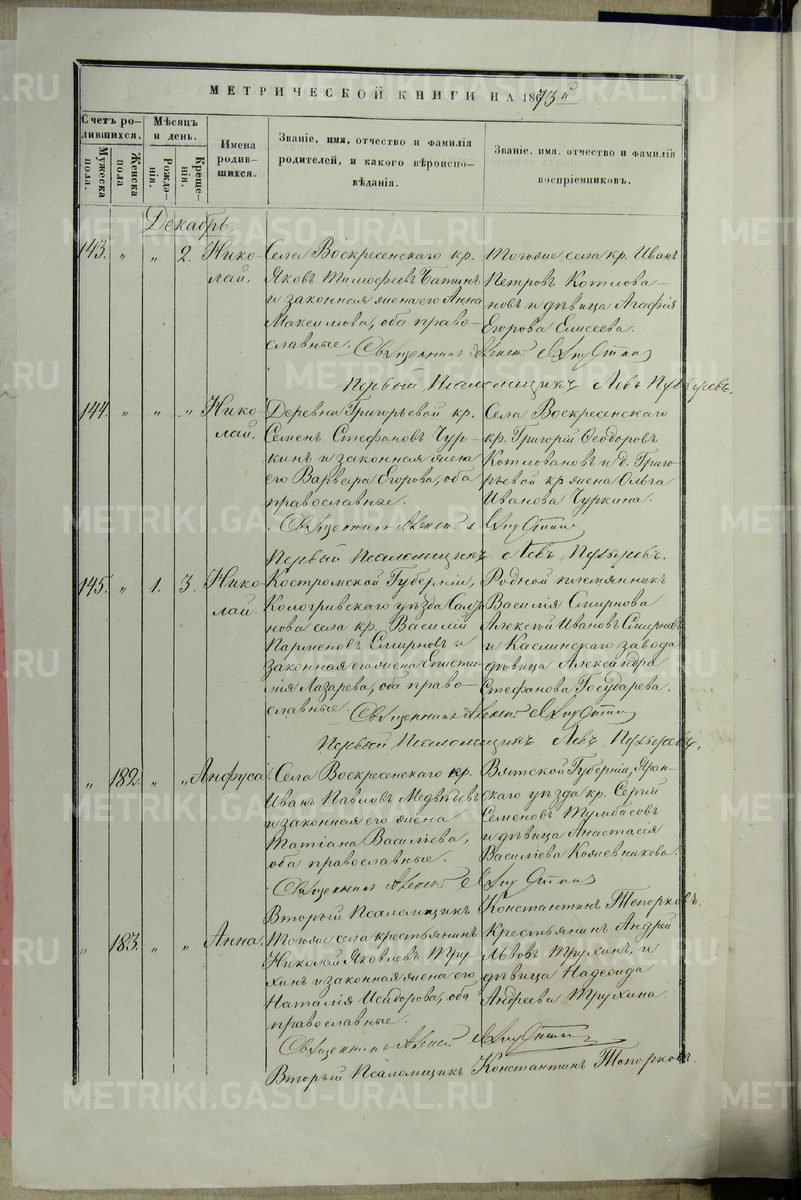 МЕТРИЧЕСКОЙ КНИГИ НА 1873й
Счетъ родившихся.
Мужеска пола.
Женска пола
Мѣсяцъ и день.
Рожденія.
Крещенія.
Имена родившихся.
Званіе, имя, отчество и фамилія родителей, и какого вѣроисповѣданія.
Званіе, имя, отчество и фамилій воспріемниковъ.
Декабрь.
143. " " 2. Николай.
Села Воскресенскаго кр.
Яковъ Тимофеевъ Батинъ
и законная жена его Анна
Максимова, оба православные.
Тогоже села кр. Иванъ
Петровъ Котловановъ и дѣвица Агафія
Егорова Елисеева.
Священникъ Алексій
Первый Псаломщикъ Левъ
144. " " " Николай.
Деревни Григорьевой кр.
Семенъ Стефановъ Чуркинъ и законная жена
его Варвара Егорова, оба
православные.
Села Воскресенскаго
кр. Григорій Ѳеодоровъ
Котловановъ и д. Григорьевой кр. жена Ольга
Иванова Чуркина.
Священникъ Алексій
Первый Псаломщикъ Левъ
145. " 1. 3. Николай.
Костромской Губерніи,
Кологривскаго уѣзда
села кр. Василій
Парменовъ Смирновъ и
законная его жена Епистимія Лазарева, оба православные.
Родной племянникъ
Василія Смирнова
Алексѣй Ивановъ Смирновъ
и Каслинскаго завода
дѣвица Александра
Стефанова Государева.
Священникъ Алексій
Первый Псаломщикъ Левъ
" 182. " " Анфуса.
Села Воскресенскаго кр.
Иванъ Павловъ Медвѣдевъ
и законная его жена
Татіана Васильева,
оба православные.
Вятской Губерніи, Яранскаго уѣзда кр. Сергій
Семеновъ Тумбасовъ
и дѣвица Анастасія
Васильева Кожевникова.
Священникъ Алексій
Второй Псаломщикъ Константинъ Топорковъ.
" 183. " " Анна.
Тогоже села крестьянинъ
Николай Яковлевъ Трухинъ и законная жена его
Наталія Исидорова, оба
православные.
Крестьянинъ Андрей
Львовъ Трухинъ, и
дѣвица Надежда
Андреева Трухина.
Священникъ Алексій
Вторый Псаломщикъ Константинъ Топорковъ.
METRIKI.GASO-URAL.RU